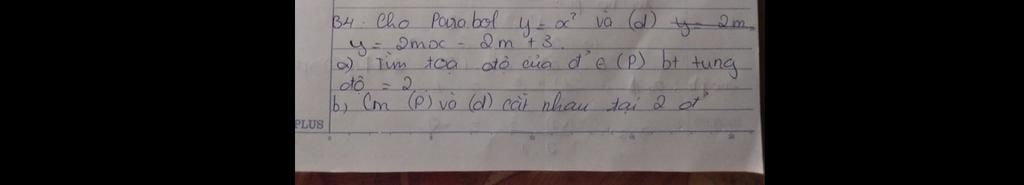 B4. Cho Parabol y = x² và (d) y = 2m
y = 2mx - 2m + 3.
a) Tìm toạ độ của đ' ∈ (P) bt tung
độ = 2
b, Cm (P) và (d) cắt nhau tại 2 đ'
PLUS